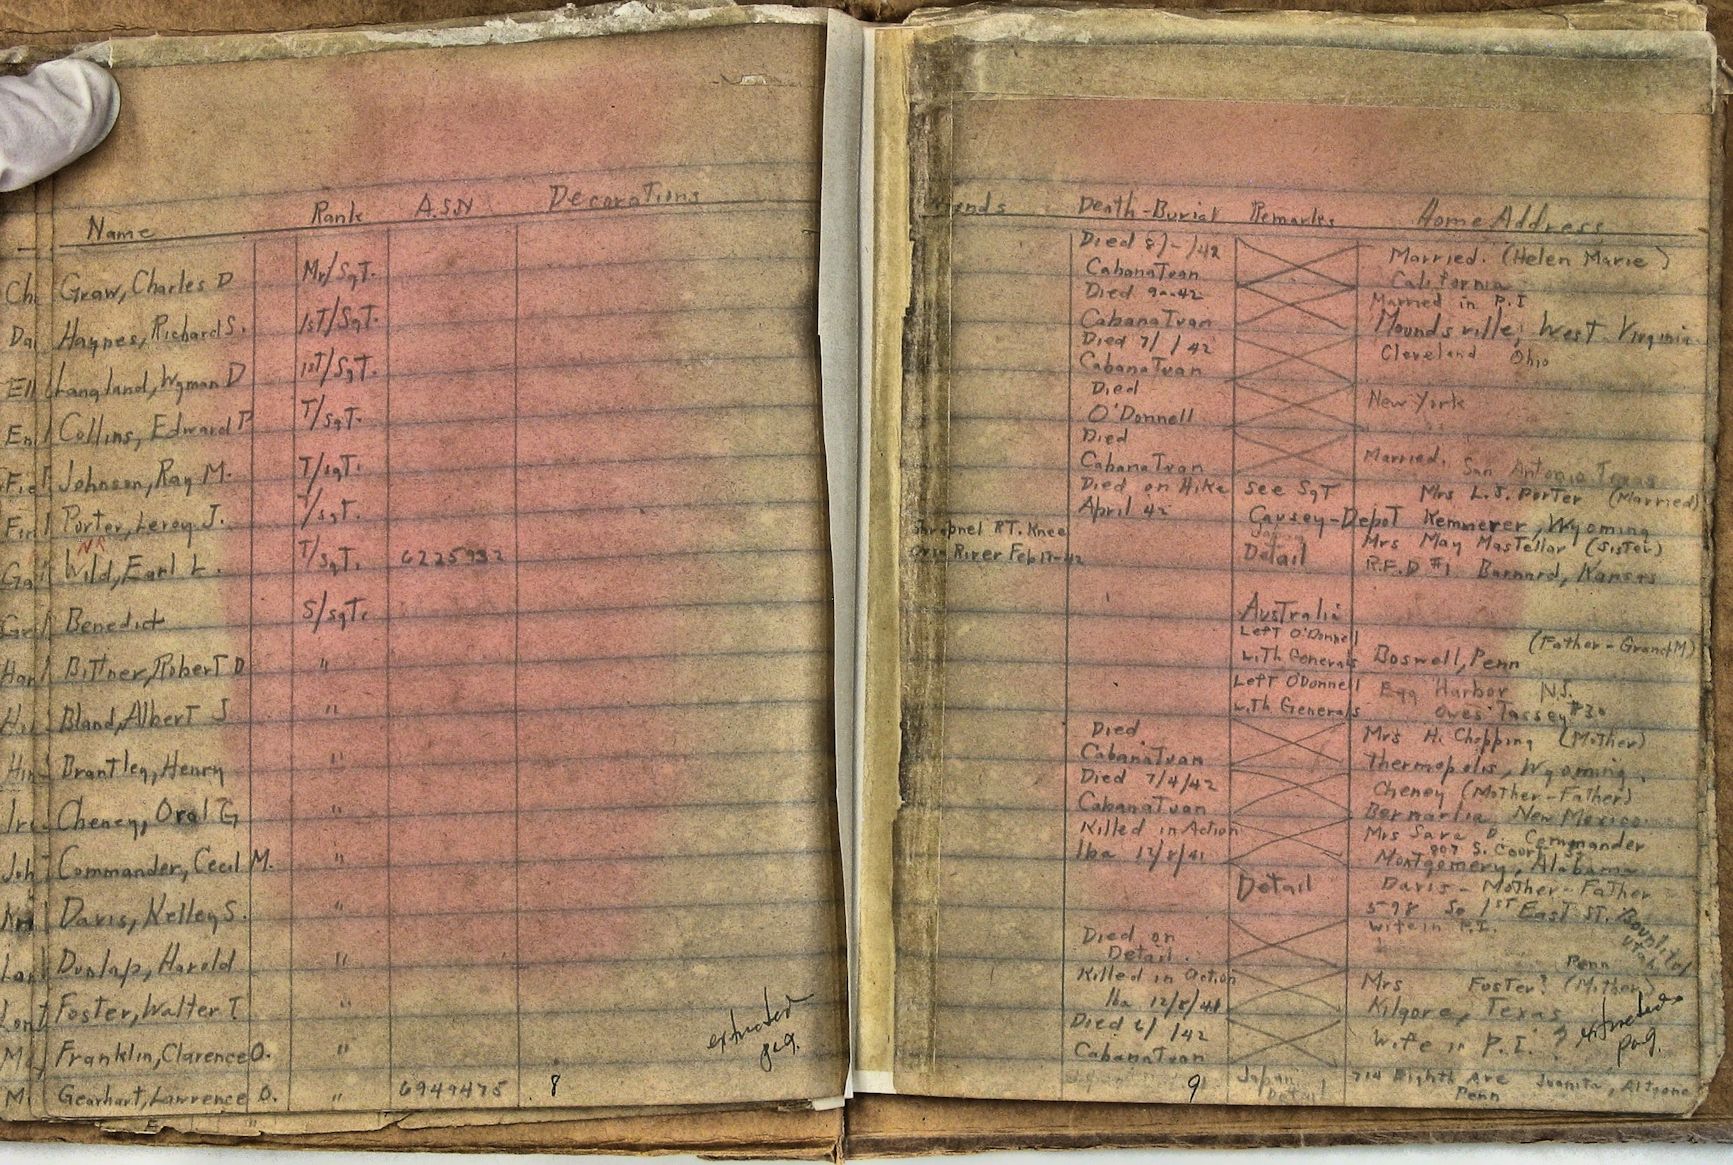 Name Rank A.S.N Decorations
Ch Graw, Charles D Mr/SgT.
Da Haynes, Richard S. 1sT/SgT.
Ell Langland, Wyman D 1sT/SgT.
En Collins, Edward P T/SgT.
Johnson, Ray M. T/sgT.
Porter, Leroy J. T/sgT.
NR
Ga Wild, Earl L. T/SgT. 6225932
Gr Benedict S/sgT.
Har Bittner, Robert D "
Hi Bland, Albert J "
Hin Brantley, Henry "
Cheney, Oral G "
Joh Commander, Cecil M. "
Davis, Kelley S. "
Dunlap, Harold "
Foster, Walter T "
Franklin, Clarence O. "
extracted
pag.
M Gearhart, Lawrence O. " 6949475 8
Death-Burial Remarks Home Address
Died 8/-/42 Married. (Helen Marie)
CabanaTuan California
Died 9-42 Married in P.I
CabanaTuan Moundsville, West Virginia
Died 7/ /42 Cleveland Ohio
CabanaTuan
Died New York
O'Donnell
Died Married. San Antonio Texas
CabanaTuan
Died on Hike see SgT Mrs L.J. Porter (Married)
April 42 Causey-Depot Kemmerer, Wyoming
Shrapnel RT. Knee Mrs May Mastellar (Sister)
River Feb 17-42 Detail R.F.D #1 Barnard, Kansas
Australia
Left O'Donnell (Father-GrandM)
with Generals Boswell, Penn
Left O'Donnell Egg Harbor N.J.
with Generals Owes Tassey #30
Died Mrs H. Chopping (Mother)
CabanaTuan Thermopolis, Wyoming.
Died 7/4/42 Cheney (Mother-Father)
CabanaTuan New Mexico
Killed in Action Mrs Sara D. Commander
807 S. Court ST
Iba 12/8/41 Montgomery, Alabama
Detail Davis-Mother-Father
598 So 1ST East ST. Bountiful
Utah
wife in P.I.
Died on
Detail. Penn
Killed in action Mrs Foster? (Mother)
Iba 12/8/41 Kilgore, Texas
Died 6/ /42 Wife in P.I. ?
CabanaTuan
extracted
pag.
9 Japan 714 Eighth Ave Juanita, Altoona
Detail Penn